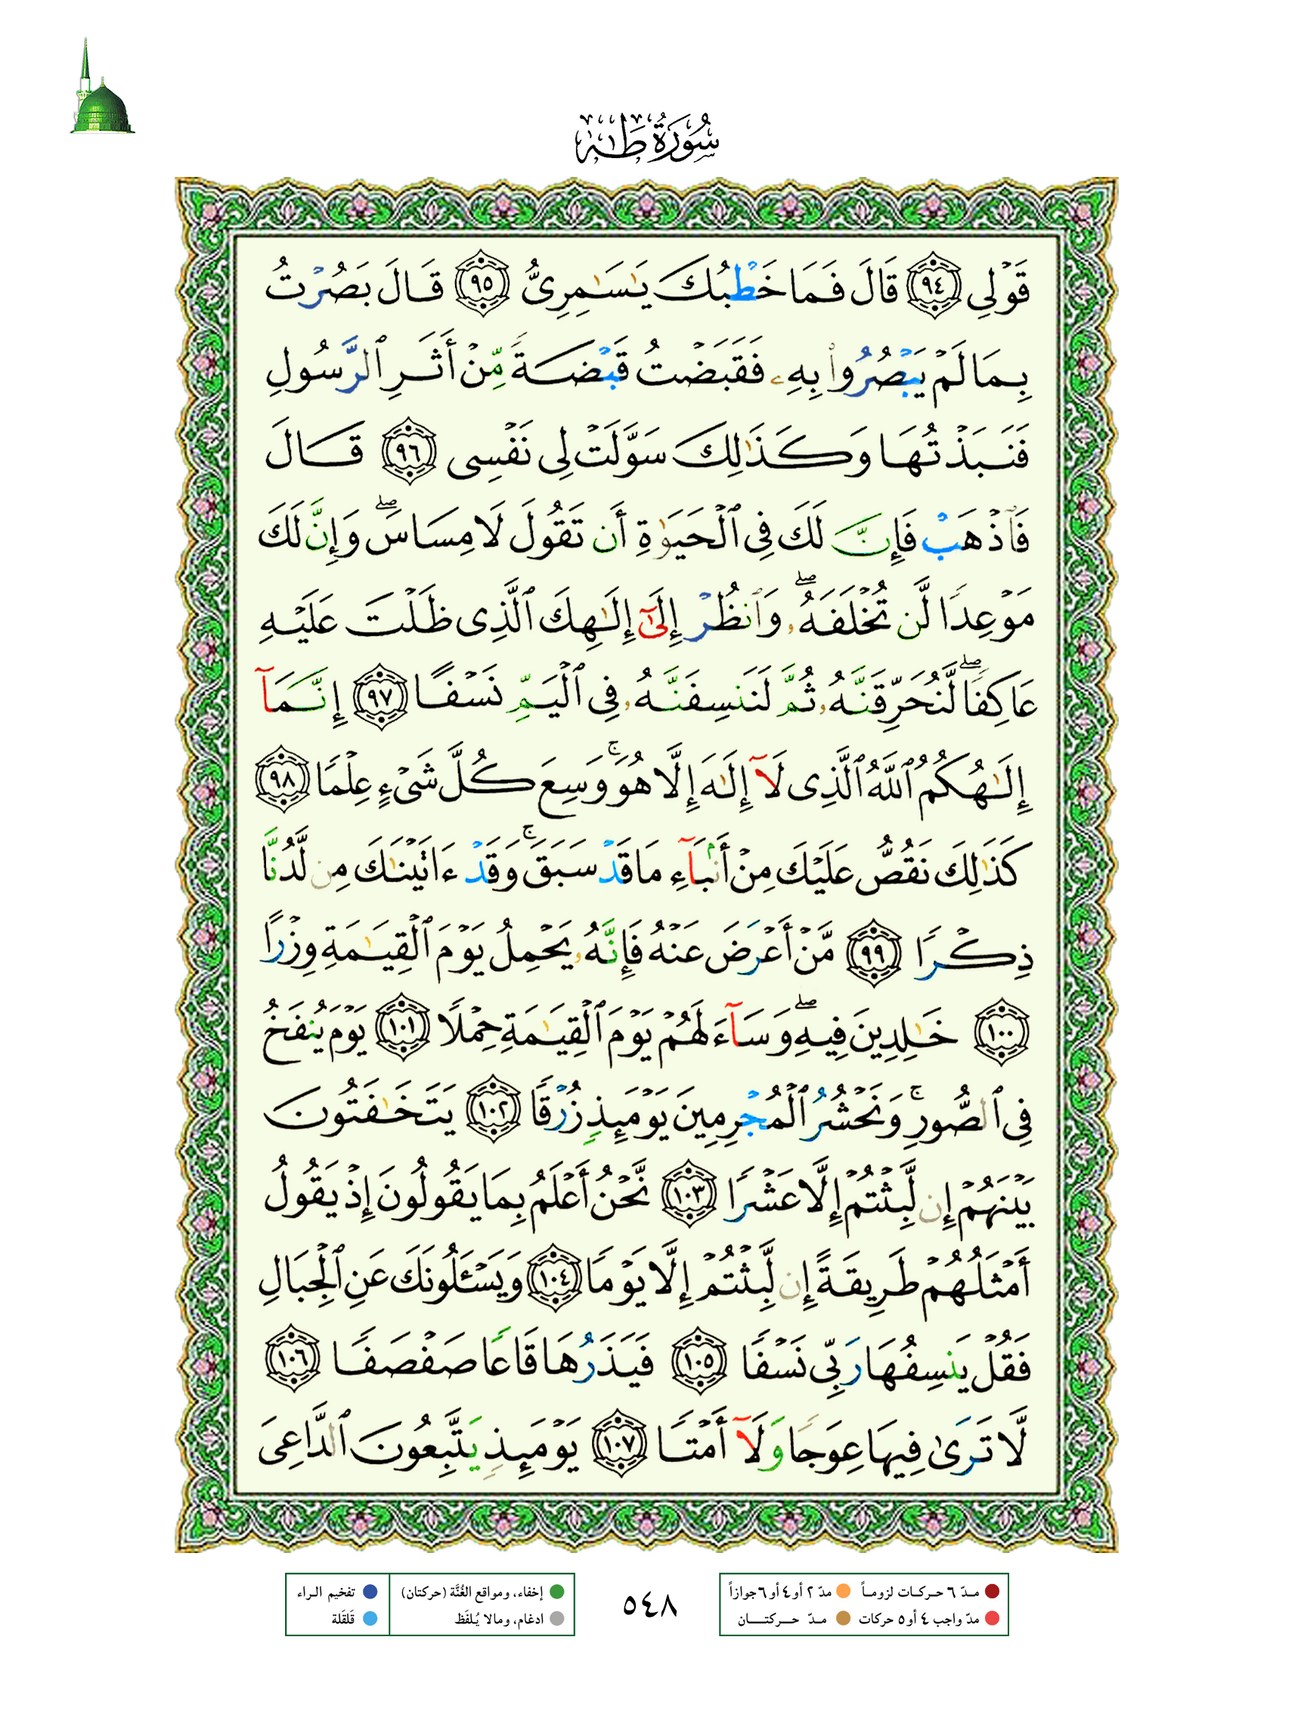 سُورَةُ طَهٰ
قَوْلِى ٩٤ قَالَ فَمَا خَطْبُكَ يَـٰسَـٰمِرِىُّ ٩٥ قَالَ بَصُرْتُ
بِمَا لَمْ يَبْصُرُوا۟ بِهِۦ فَقَبَضْتُ قَبْضَةً مِّنْ أَثَرِ ٱلرَّسُولِ
فَنَبَذْتُهَا وَكَذَٰلِكَ سَوَّلَتْ لِى نَفْسِى ٩٦ قَالَ
فَٱذْهَبْ فَإِنَّ لَكَ فِى ٱلْحَيَوٰةِ أَن تَقُولَ لَا مِسَاسَ ۖ وَإِنَّ لَكَ
مَوْعِدًا لَّن تُخْلَفَهُۥ ۖ وَٱنظُرْ إِلَىٰٓ إِلَـٰهِكَ ٱلَّذِى ظَلْتَ عَلَيْهِ
عَاكِفًا ۖ لَّنُحَرِّقَنَّهُۥ ثُمَّ لَنَنسِفَنَّهُۥ فِى ٱلْيَمِّ نَسْفًا ٩٧ إِنَّمَآ
إِلَـٰهُكُمُ ٱللَّهُ ٱلَّذِى لَآ إِلَـٰهَ إِلَّا هُوَ ۚ وَسِعَ كُلَّ شَىْءٍ عِلْمًا ٩٨
كَذَٰلِكَ نَقُصُّ عَلَيْكَ مِنْ أَنۢبَآءِ مَا قَدْ سَبَقَ ۚ وَقَدْ ءَاتَيْنَـٰكَ مِن لَّدُنَّا
ذِكْرًا ٩٩ مَّنْ أَعْرَضَ عَنْهُ فَإِنَّهُۥ يَحْمِلُ يَوْمَ ٱلْقِيَـٰمَةِ وِزْرًا
١٠٠ خَـٰلِدِينَ فِيهِ ۖ وَسَآءَ لَهُمْ يَوْمَ ٱلْقِيَـٰمَةِ حِمْلًا ١٠١ يَوْمَ يُنفَخُ
فِى ٱلصُّورِ ۚ وَنَحْشُرُ ٱلْمُجْرِمِينَ يَوْمَئِذٍ زُرْقًا ١٠٢ يَتَخَـٰفَتُونَ
بَيْنَهُمْ إِن لَّبِثْتُمْ إِلَّا عَشْرًا ١٠٣ نَّحْنُ أَعْلَمُ بِمَا يَقُولُونَ إِذْ يَقُولُ
أَمْثَلُهُمْ طَرِيقَةً إِن لَّبِثْتُمْ إِلَّا يَوْمًا ١٠٤ وَيَسْـَٔلُونَكَ عَنِ ٱلْجِبَالِ
فَقُلْ يَنسِفُهَا رَبِّى نَسْفًا ١٠٥ فَيَذَرُهَا قَاعًا صَفْصَفًا ١٠٦
لَّا تَرَىٰ فِيهَا عِوَجًا وَلَآ أَمْتًا ١٠٧ يَوْمَئِذٍ يَتَّبِعُونَ ٱلدَّاعِىَ
مدّ ٦ حركات لزوماً مدّ ٢ أو ٤ أو ٦ جوازاً
مدّ واجب ٤ أو ٥ حركات مدّ حركتان
٥٤٨
إخفاء، ومواقع الغُنَّة (حركتان) تفخيم الراء
ادغام، ومالا يُلفَظ قلقلة